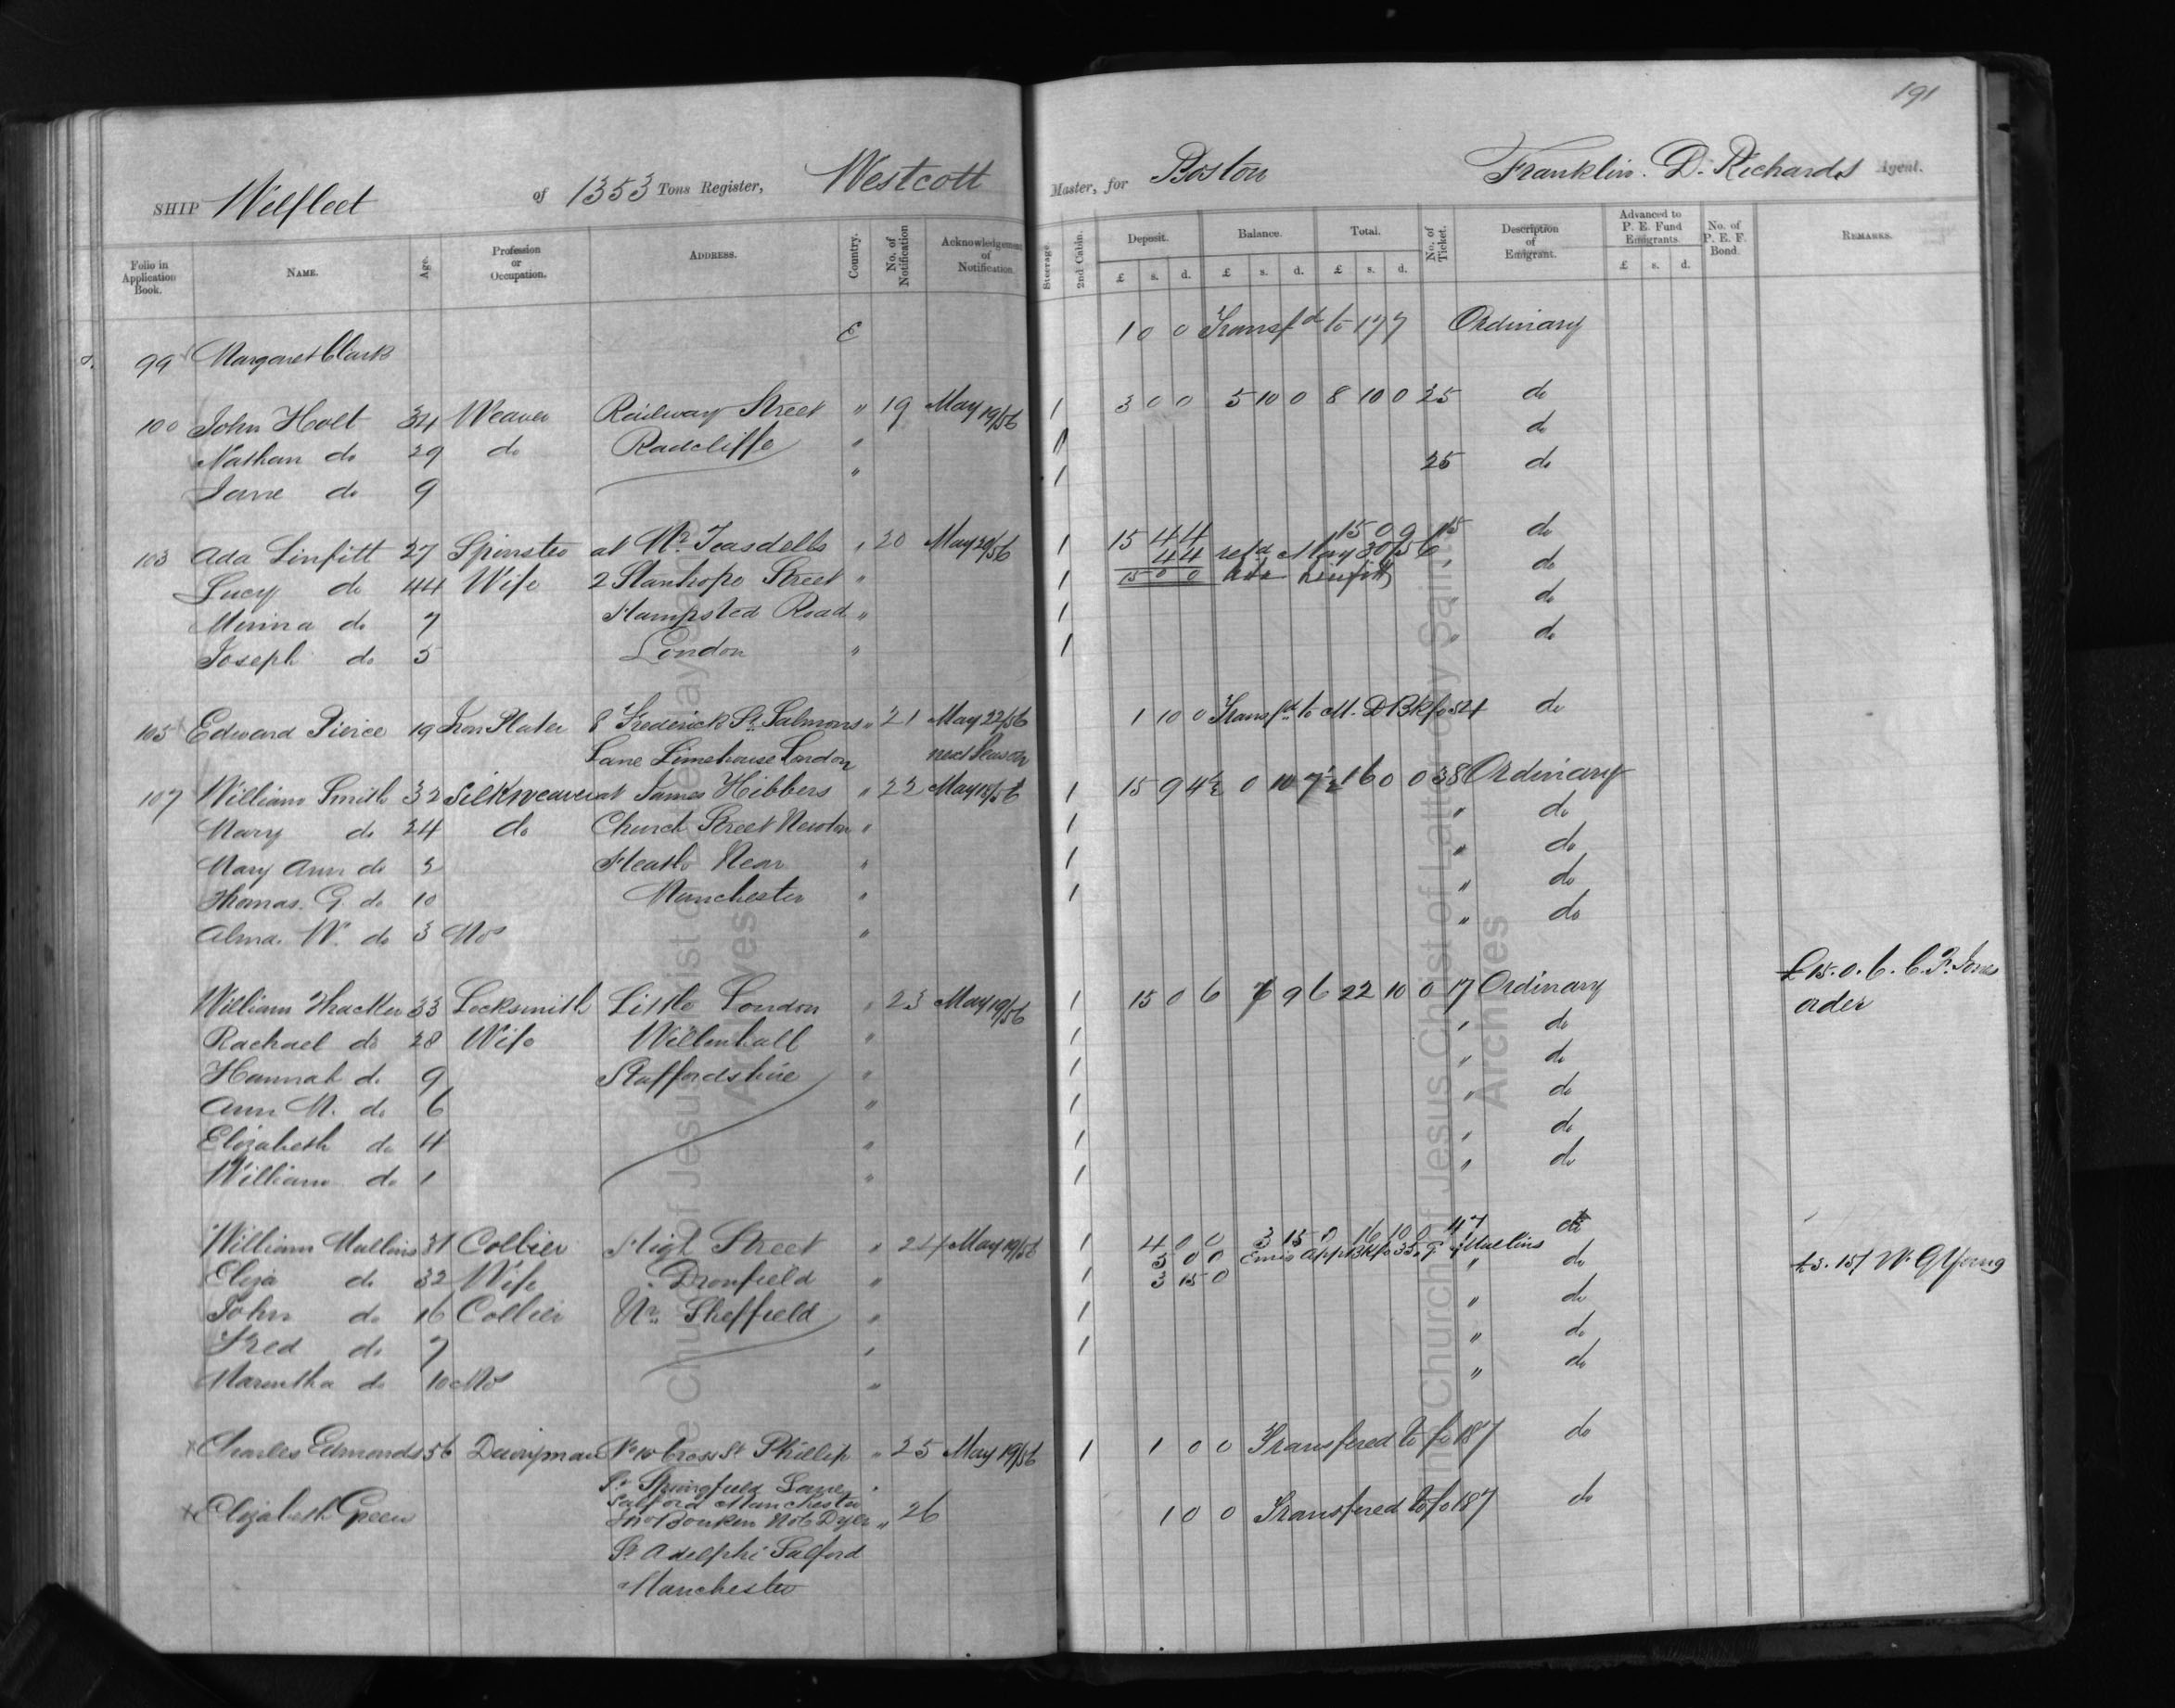 191
SHIP Welfleet of 1353 Tons Register, Westcott Master, for Boston Franklin. D. Richards Agent.
Folio in Application Book. NAME. Age. Profession or Occupation. ADDRESS. Country. No. of Notification Acknowledgement of Notification. Steerage. 2nd Cabin. Deposit. £ s. d. Balance. £ s. d. Total. £ s. d. No. of Ticket. Description of Emigrant. Advanced to P. E. Fund Emigrants. £ s. d. No. of P. E. F. Bond. REMARKS.
99 Margaret Clark E 1 0 0 Transfd to 177 Ordinary
100 John Holt 34 Weaver Railway Street " 19 May 19/56 1 3 0 0 5 10 0 8 10 0 25 do
Nathan do 29 do Radcliffe " 1 do
Jane do 9 " 1 25 do
103 Ada Linfitt 27 Spinster at Mr Teasdells " 20 May 20/56 1 15 4 4 15 0 0 15 do
4 4 refd May 30/56
Lucy do 44 Wife 2 Stanhope Street " 1 15 0 0 Ada Linfitt " do
Minna do 7 Hampsted Road " 1 " do
Joseph do 5 London " 1 " do
105 Edward Pierce 19 Iron Plater 8 Frederick St. Salmons " 21 May 22/56 1 10 0 Transfd to M. D Bk fo 524 do
Lane Limehouse London next Season
107 William Smith 32 Silkweaver at James Hibbers " 22 May 18/56 1 15 9 4½ 0 10 7½ 16 0 0 38 Ordinary
Mary do 24 do Church Street Newton " 1 " do
Mary Ann do 3 Heath Near " 1 " do
Thomas. G. do 10 Manchester " 1 " do
Alma. W. do 3 Mos " " do
William Thacker 33 Locksmith Little London " 23 May 19/56 1 15 0 6 7 9 6 22 10 0 17 Ordinary £15. 0. 6. C. P. Jones
ader
Rachael do 28 Wife Willenhall " 1 " do
Hannah do 9 Staffordshire " 1 " do
Ann M. do 6 " 1 " do
Elizabeth do 4 " 1 " do
William do 1 " 1 " do
William Mullins 31 Collier High Street " 24 May 19/56 1 4 0 0 3 15 0 16 10 0 47 do
5 0 0 Emig App Bk fo 35, G Mullins
Eliza do 32 Wife Dronfield " 1 3 15 0 " do £3. 15/ W. G Young
John do 16 Collier Nr. Sheffield " 1 " do
Fred do 7 " 1 " do
Marintha do 10 Mos " " do
Charles Edmonds 56 Dairyman No 10 Cross St Phillip " 25 May 19/56 1 1 0 0 Transfered to fo 187 do
St Springfield Lane
Salford Manchester
Elizabeth Green No 6 Dyer " 26 1 0 0 Transfered to fo 187 do
St Adelphi Salford
Manchester
The Church of Jesus Christ of Latter-day Saints
Archives
The Church of Jesus Christ of Latter-day Saints
Archives